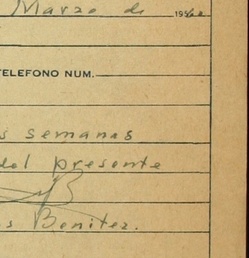 Marzo de 1942
TELEFONO NUM.
s semanas
del presente
s Benitez.